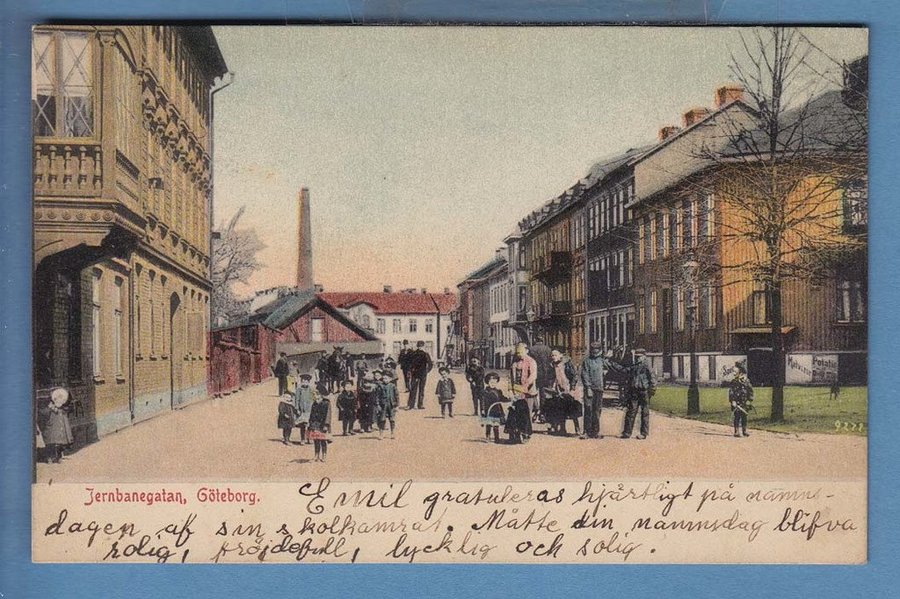 Potatis
9272
Jernbanegatan, Göteborg.
Emil gratuleras hjärtligt på namns-
dagen af sin skolkamrat. Måtte din namnsdag blifva
rolig, fröjdefull, lycklig och solig.